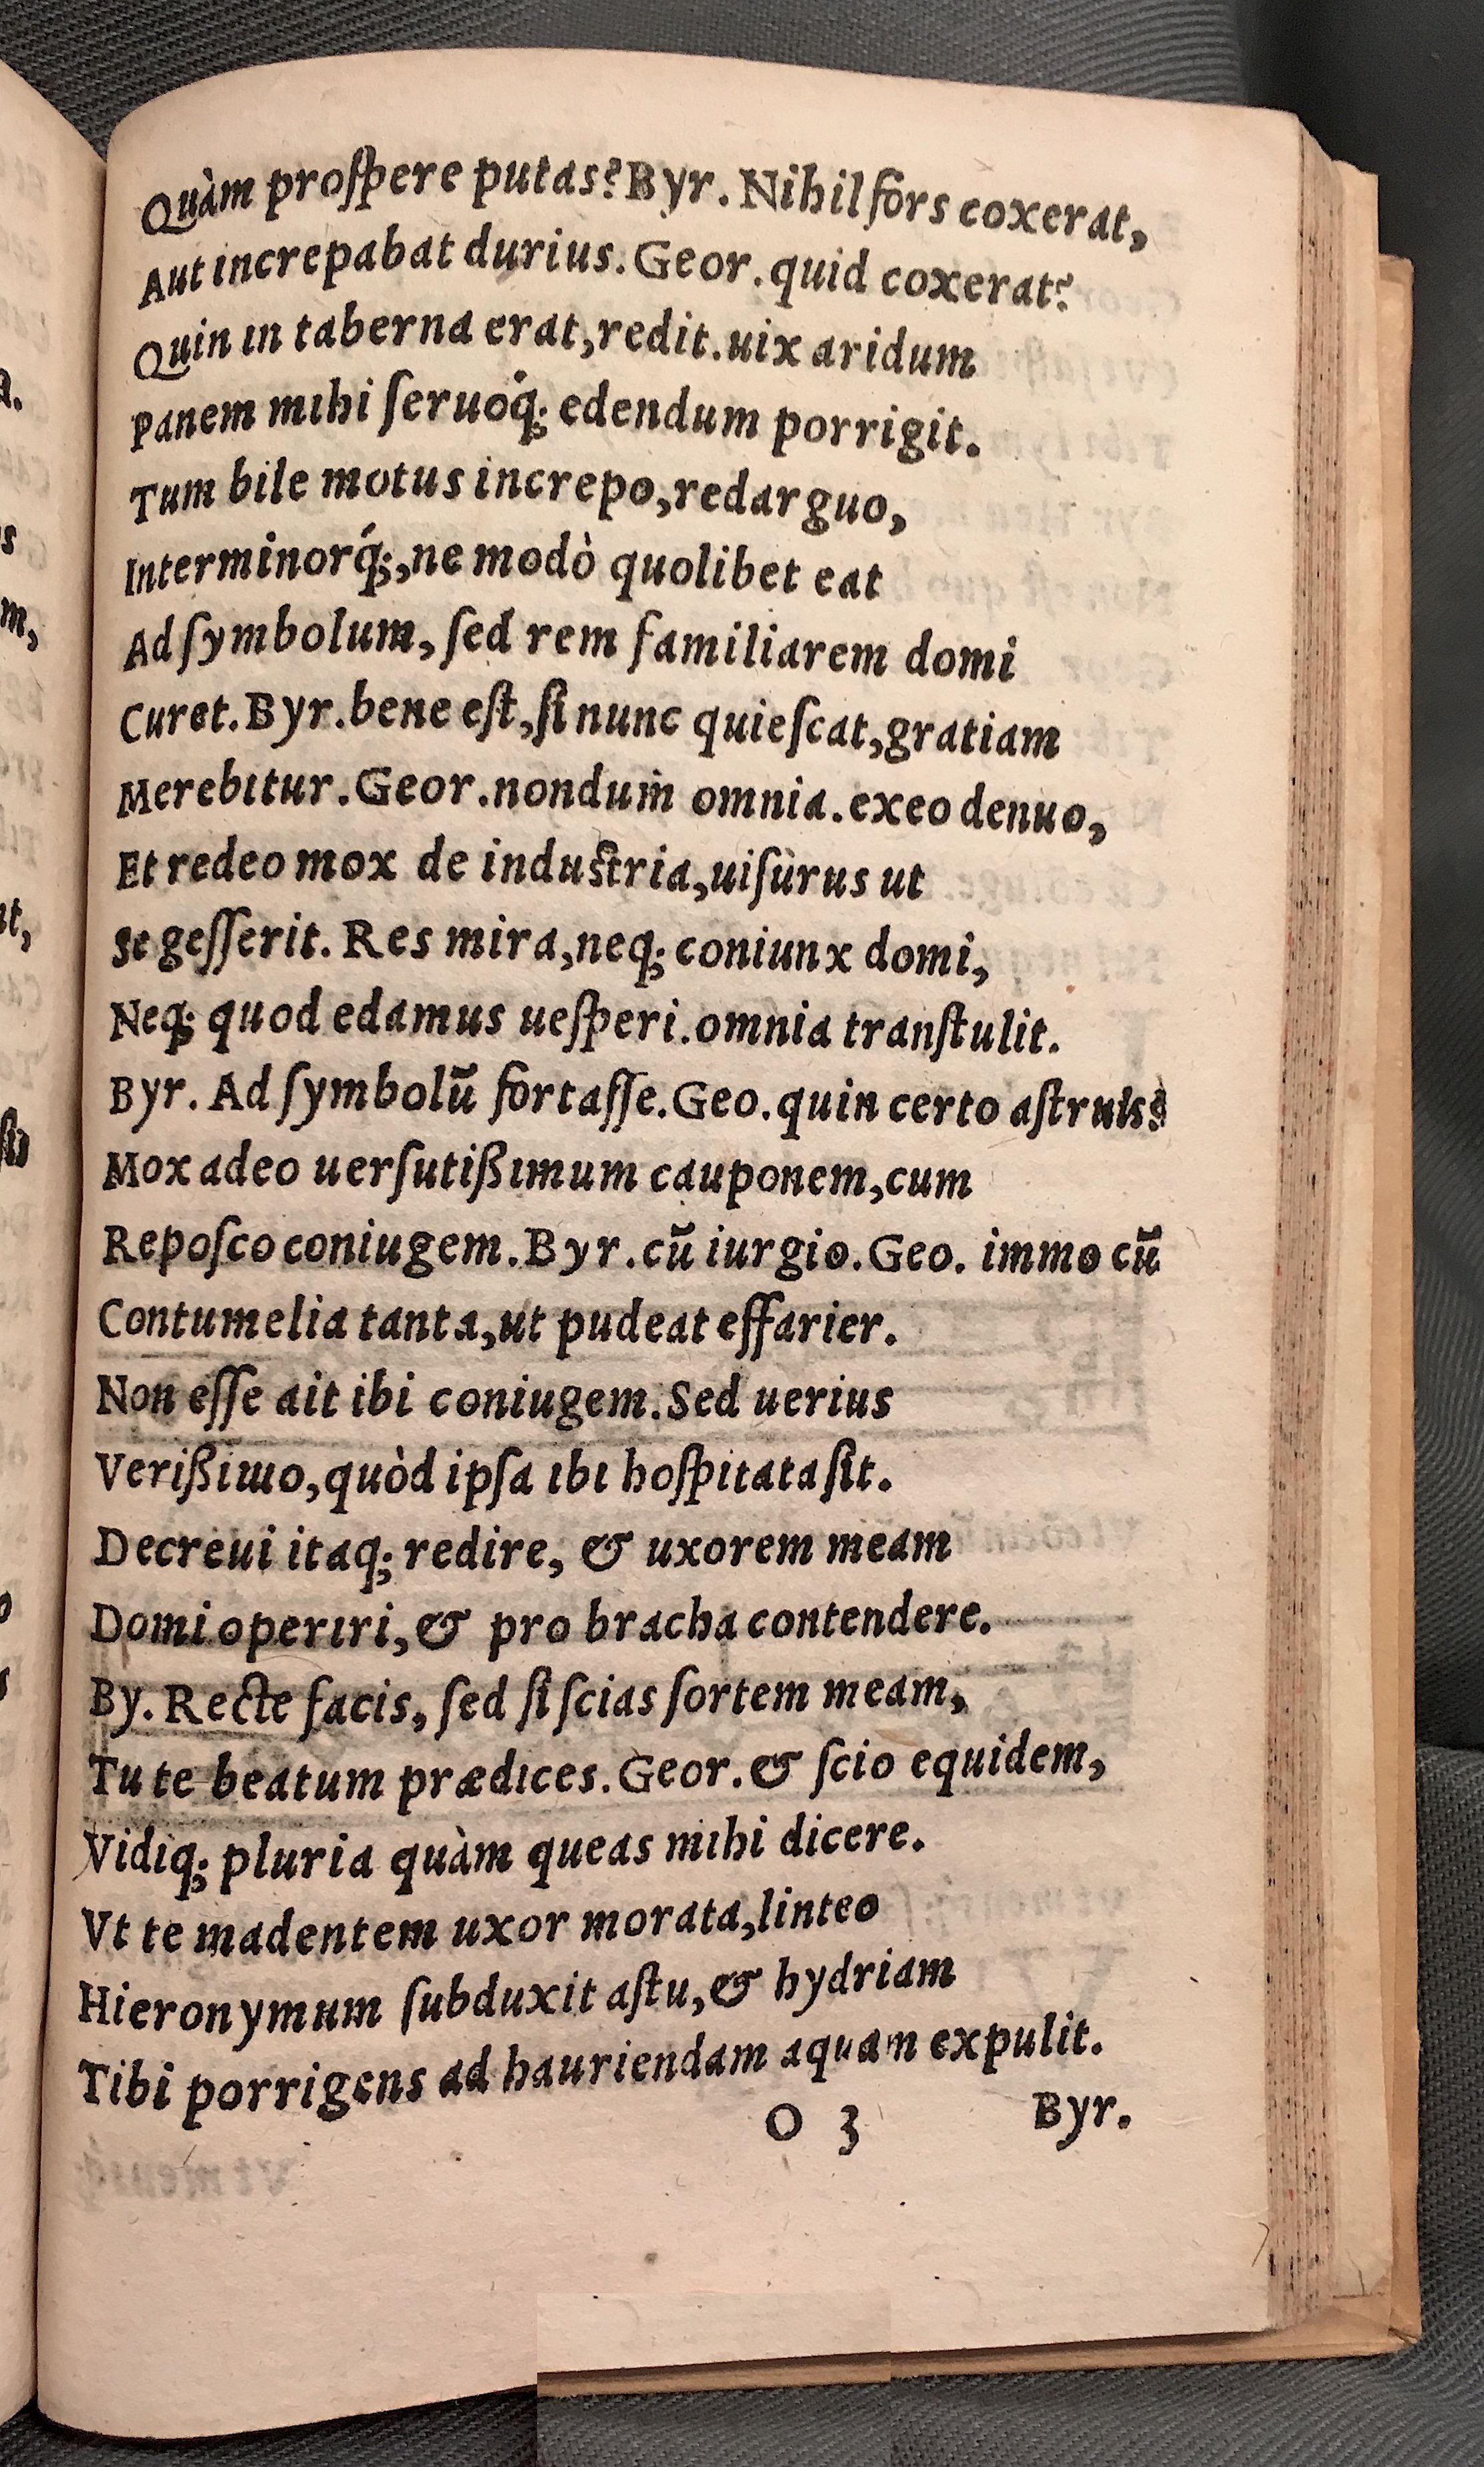 Quàm proſpere putas? Byr. Nihil fors coxerat,
Aut increpabat durius. Geor. quid coxerat?
Quin in taberna erat, redit. uix aridum
Panem mihi ſeruoq́; edendum porrigit.
Tum bile motus increpo, redarguo,
Interminorq́;, ne modò quolibet eat
Ad ſymbolum, ſed rem familiarem domi
Curet. Byr. bene eſt, ſi nunc quieſcat, gratiam
Merebitur. Geor. nondum omnia. exeo denuo,
Et redeo mox de induſtria, uiſurus ut
Se geſſerit. Res mira, neq; coniunx domi,
Neq; quod edamus ueſperi. omnia tranſtulit.
Byr. Ad ſymbolū fortaſſe. Geo. quin certo aſtruis?
Mox adeo uerſutißimum cauponem, cum
Repoſco coniugem. Byr. cū iurgio. Geo. immo cū
Contumelia tanta, ut pudeat effarier.
Non eſſe ait ibi coniugem. Sed uerius
Verißimo, quòd ipſa ibi hoſpitata ſit.
Decreui itaq; redire, & uxorem meam
Domi operiri, & pro bracha contendere.
By. Recte facis, ſed ſi ſcias ſortem meam,
Tu te beatum prædices. Geor. & ſcio equidem,
Vidiq; pluria quàm queas mihi dicere.
Vt te madentem uxor morata, linteo
Hieronymum ſubduxit aſtu, & hydriam
Tibi porrigens ad hauriendam aquam expulit.
O 3 Byr.